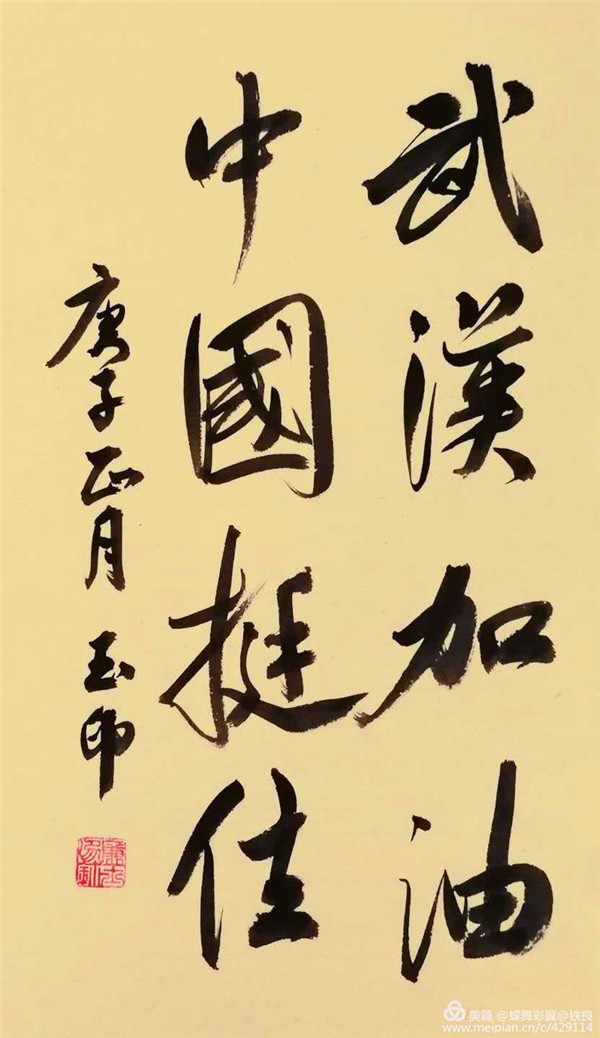 武漢加油
中國挺住
庚子正月 玉印
美篇 @蝶舞彩翼@铁良
www.meipian.cn/c/429114